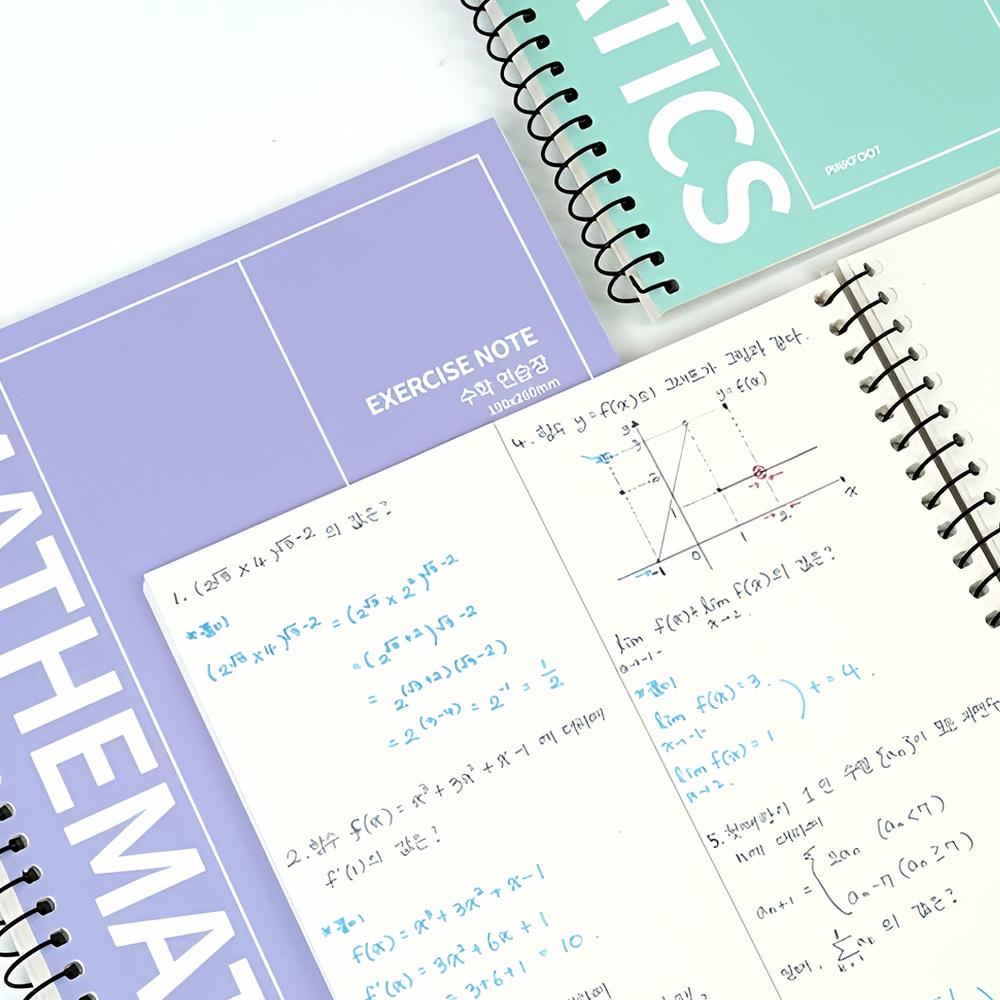 ATICS
EXERCISE NOTE
수학 연습장
190x260mm
MATHEMAT
1. (2^√3 × 4)^√3-2 의 값은?
풀이)
(2^√3 × 4)^√3-2 = (2^√3 × 2²)^√3-2
= (2^√3+2)^√3-2
= 2^(√3+2)(√3-2)
= 2^(3-4) = 2^-1 = 1/2
2. 함수 f(x) = x³ + 3x² + x - 1 에 대하여
f'(1)의 값은?
풀이)
f(x) = x³ + 3x² + x - 1
f'(x) = 3x² + 6x + 1
= 3+6+1 = 10.
4. 함수 y=f(x)의 그래프가 그림과 같다.
y
y=f(x)
3
2
1
-1
0
1
2
x
lim x→-1- f(x) + lim x→2 f(x)의 값은?
풀이)
lim x→-1- f(x) = 3.
) + = 4.
lim x→2 f(x) = 1
5. 첫째항이 1인 수열 {an}이 모든 자연수
n에 대하여
an+1 = { 2an (an<7)
an-7 (an≥7)
일때, Σ ak 의 값은?